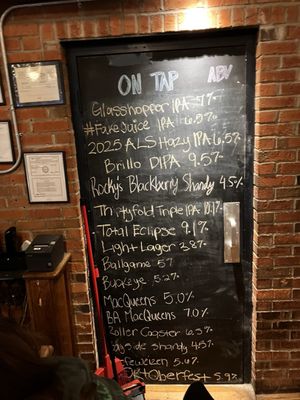 ON TAP ABV
Glasshopper IPA 7%
#FakeJuice IPA 6.5%
2025 ALS Hazy IPA 6.5%
Brillo DIPA 9.5%
Rockys Blackberry Shandy 4.5%
Thirtyfold Triple IPA 10.1%
Total Eclipse 9.1%
Light Lager 3.8%
Ballgame 5%
Buckeye 5.2%
MacQueens 5.0%
BA MacQueens 7.0%
Roller Coaster 6.5%
shandy 4.5%
5.6%
Oktoberfest 5.9%